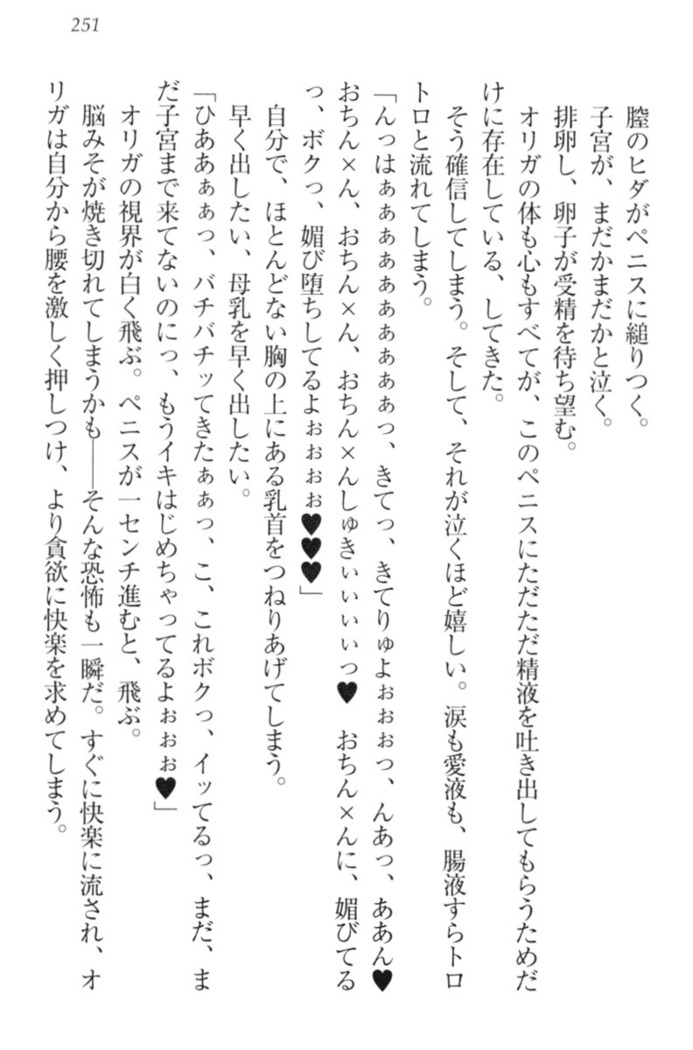 251
膣のヒダがペニスに縋りつく。
子宮が、まだかまだかと泣く。
排卵し、卵子が受精を待ち望む。
オリガの体も心もすべてが、このペニスにただただ精液を吐き出してもらうためだ
けに存在している、してきた。
そう確信してしまう。そして、それが泣くほど嬉しい。涙も愛液も、腸液すらトロ
トロと流れてしまう。
「んっはぁぁぁぁぁぁぁぁぁっ、きてっ、きてりゅよぉぉぉっ、んあっ、ああん♥
おちん×ん、おちん×ん、おちん×んしゅきぃぃぃぃっ♥　おちん×んに、媚びてる
っ、ボクっ、媚び堕ちしてるよぉぉぉぉ♥♥♥」
自分で、ほとんどない胸の上にある乳首をつねりあげてしまう。
早く出したい、母乳を早く出したい。
「ひああぁぁっ、バチバチッてきたぁぁっ、こ、これボクっ、イッてるっ、まだ、ま
だ子宮まで来てないのにっ、もうイキはじめちゃってるよぉぉぉ♥」
オリガの視界が白く飛ぶ。ペニスが一センチ進むと、飛ぶ。
脳みそが焼き切れてしまうかも――そんな恐怖も一瞬だ。すぐに快楽に流され、オ
リガは自分から腰を激しく押しつけ、より貪欲に快楽を求めてしまう。